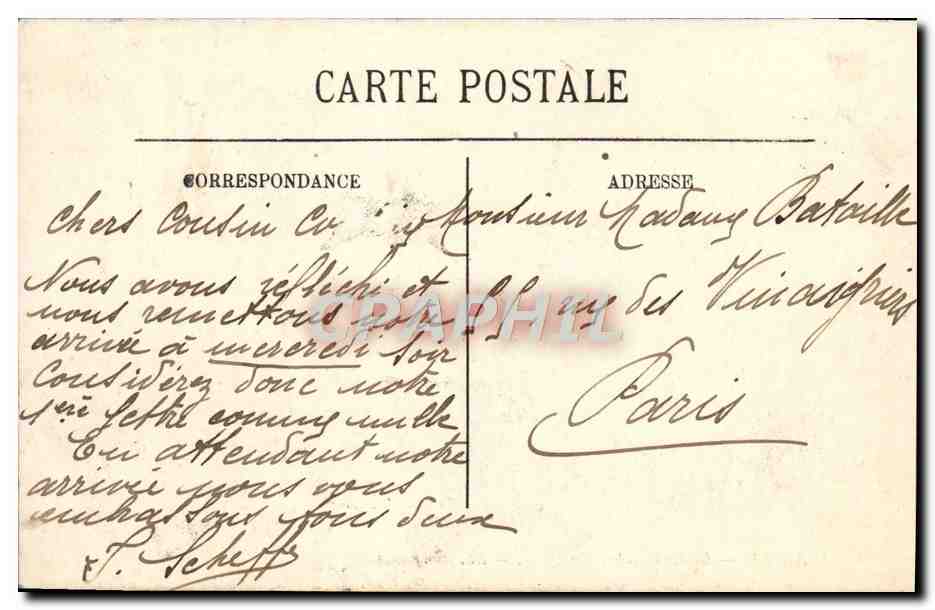 CARTE POSTALE
CORRESPONDANCE
Chers Cousin
Nous avons réfléchi et
nous remettons notre
arrivée à mercredi soir
Considérez donc notre
1ère lettre comme nulle
En attendant notre
arrivée nous vous
embrassons tous deux
Scheff
ADRESSE
Monsieur Madame Bataille
rue des Vinaigriers
Paris
CPAPHIL